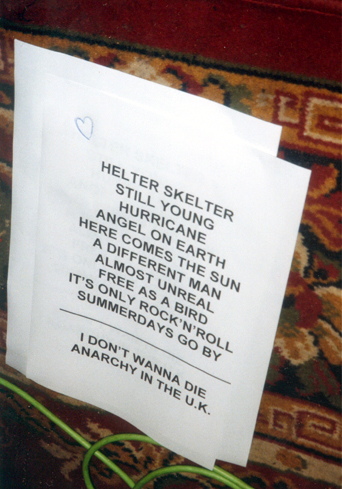 HELTER SKELTER
STILL YOUNG
HURRICANE
ANGEL ON EARTH
HERE COMES THE SUN
A DIFFERENT MAN
ALMOST UNREAL
FREE AS A BIRD
IT'S ONLY ROCK'N'ROLL
SUMMERDAYS GO BY
I DON'T WANNA DIE
ANARCHY IN THE U.K.